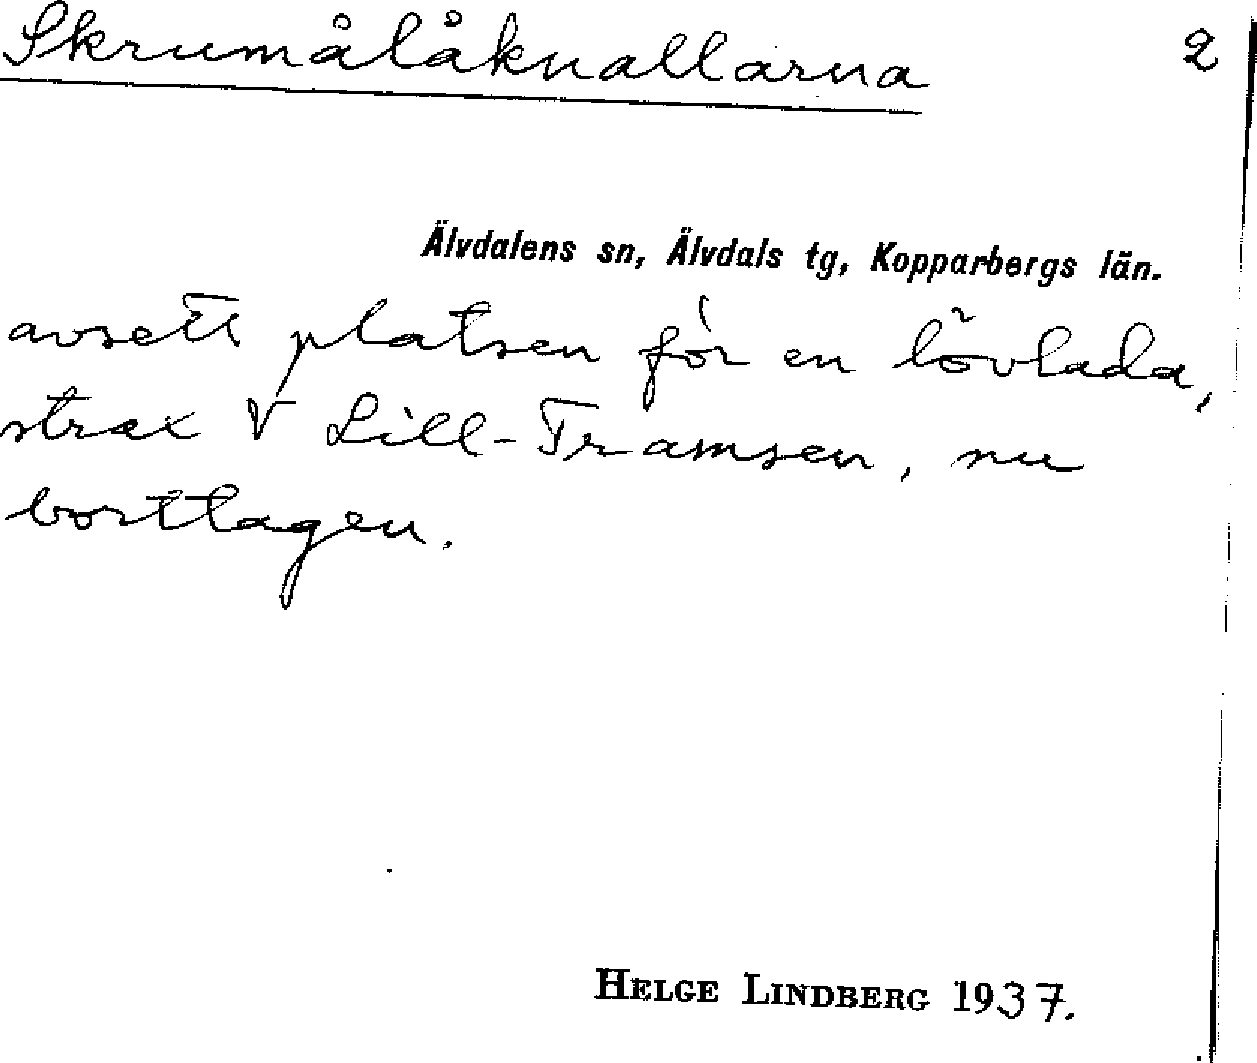 Skrumålåknallarna 2
Älvdalens sn, Älvdals tg, Kopparbergs län.
avsett platsen för en lövlada,
strax V Lill-Tramsen, nu
borttagen.
HELGE LINDBERG 1937.